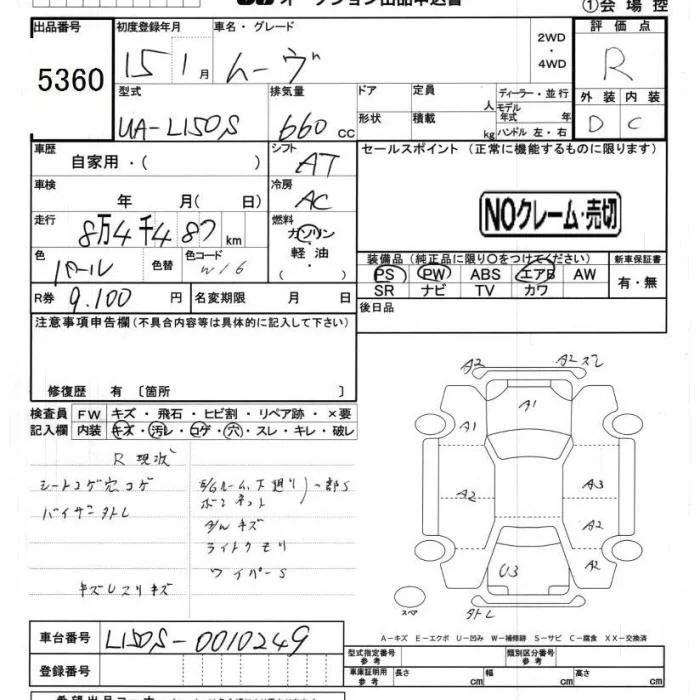 オークション出品申込書
①会場控
出品番号
5360
初度登録年月
15 1月
車名・グレード
ムーヴ
2WD
・
4WD
評価点
R
型式
UA-L150S
排気量
660 cc
ドア
定員
人
ディーラー・並行
形状
積載
kg
モデル年式 年
ハンドル 左・右
外装 内装
D C
車歴
自家用・( )
シフト
AT
セールスポイント (正常に機能するものに限ります)
車検
年 月( 日)
冷房
AC
NOクレーム・売切
走行
8万4千487 km
燃料
ガソリン
軽油
・( )
色
パール
色替
色コード
W16
装備品 (純正品に限り○をつけてください)
PS PW ABS エアB AW
SR ナビ TV カワ
新車保証書
有・無
R券
9.100 円
名変期限 月 日
後日品
注意事項申告欄 (不具合内容等は具体的に記入して下さい)
修復歴 有 〔箇所 〕
検査員
記入欄
FW キズ・飛石・ヒビ割・リペア跡・×要
内装 キズ・汚レ・コゲ・穴・スレ・キレ・破レ
R 現状
シートコゲ穴コゲ
バイザー外レ
E/Gルーム、下廻り
ボンネット
一部S
ライトクモリ
ワイパーS
キズUスリキズ
A2
A2 スレ
A1
A1
A2
A3
A2
A2
U3
スペア
外レ
A-キズ E-エクボ U-凹み W-補修跡 S-サビ C-腐食 XX-交換済
車台番号
L150S-0010249
登録番号
型式指定番号
参考
類別区分番号
参考
車庫証明用
参考
長さ cm
幅 cm
高さ cm
希望出品コーナー